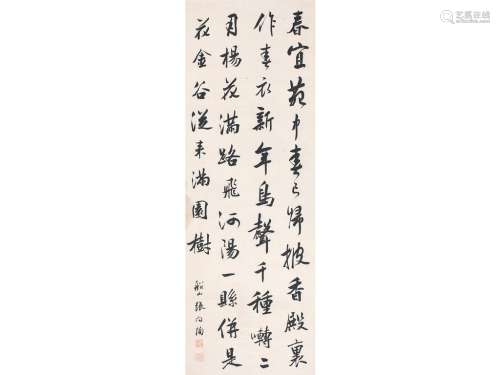 易拍全球
春宜苑中春已歸披香殿裏
作春衣新年鳥聲千種囀二
月楊花滿路飛河陽一縣併是
花金谷從來滿園樹
船山張問陶